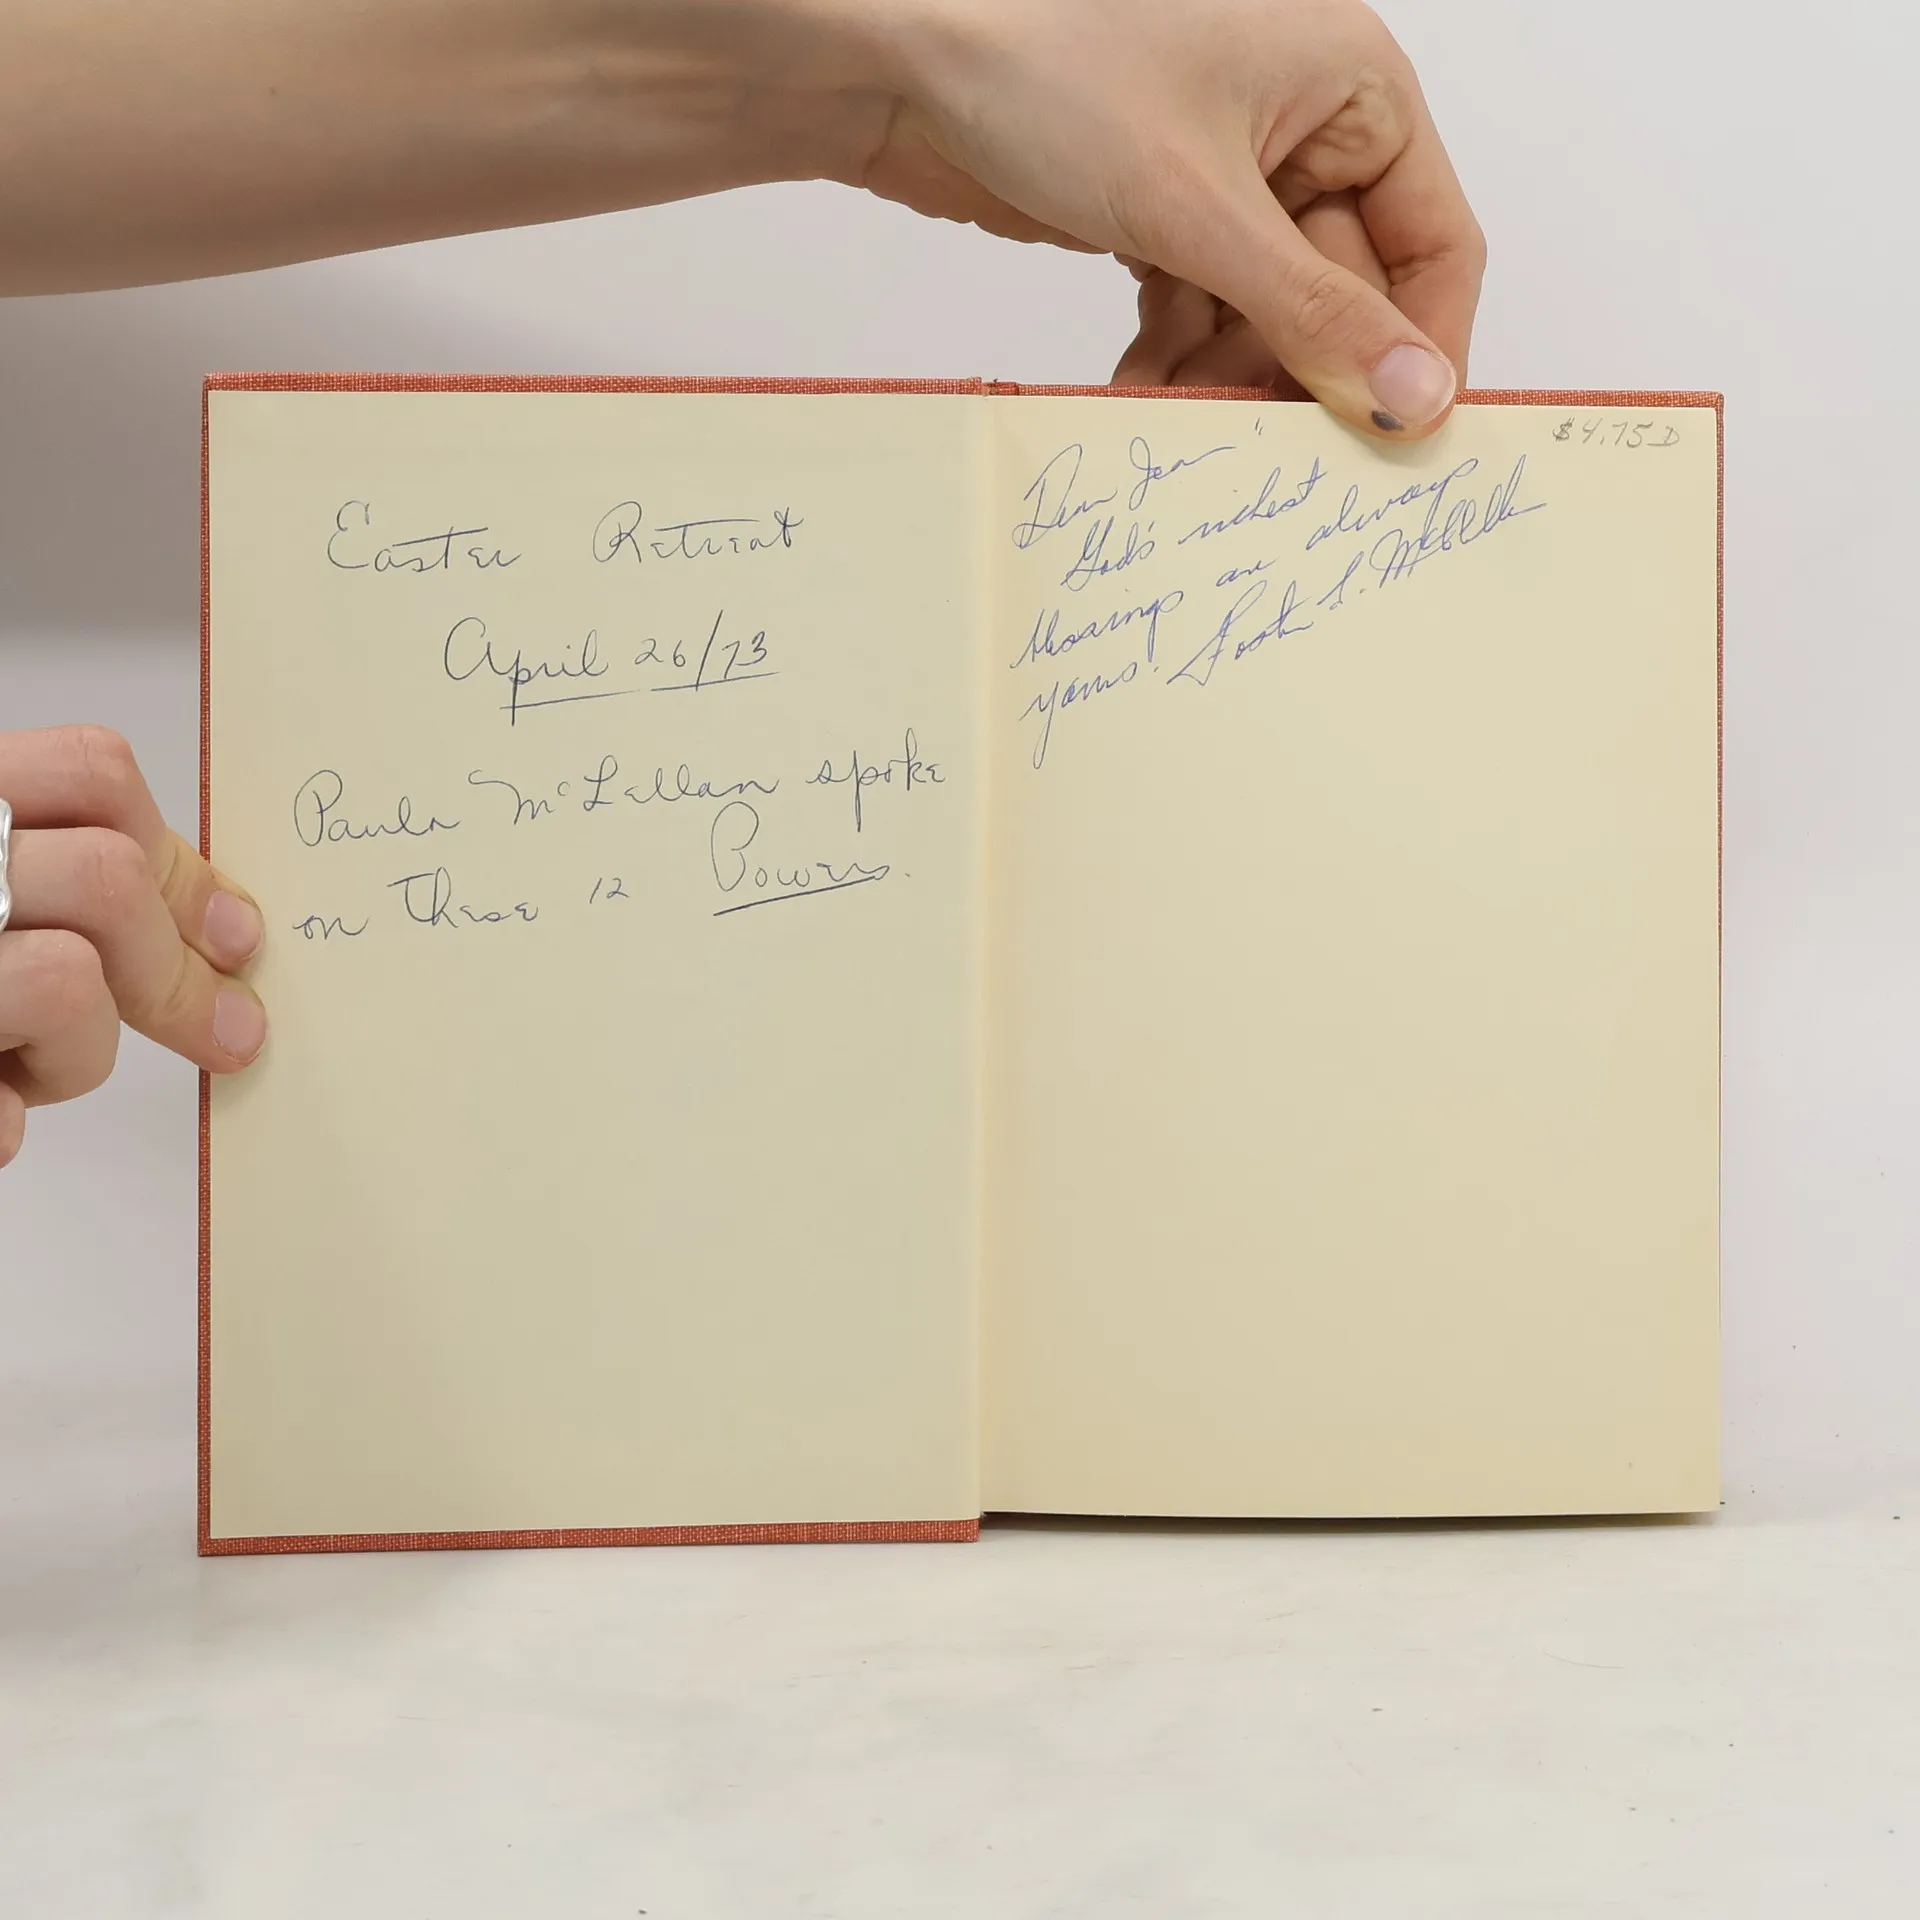 Easter Retreat
April 26/73
Paula McLellan spoke
on these 12 Powers.
$4.75 D
Dear Jean"
God's richest
blessings are always
yours. Foster L. McClellan